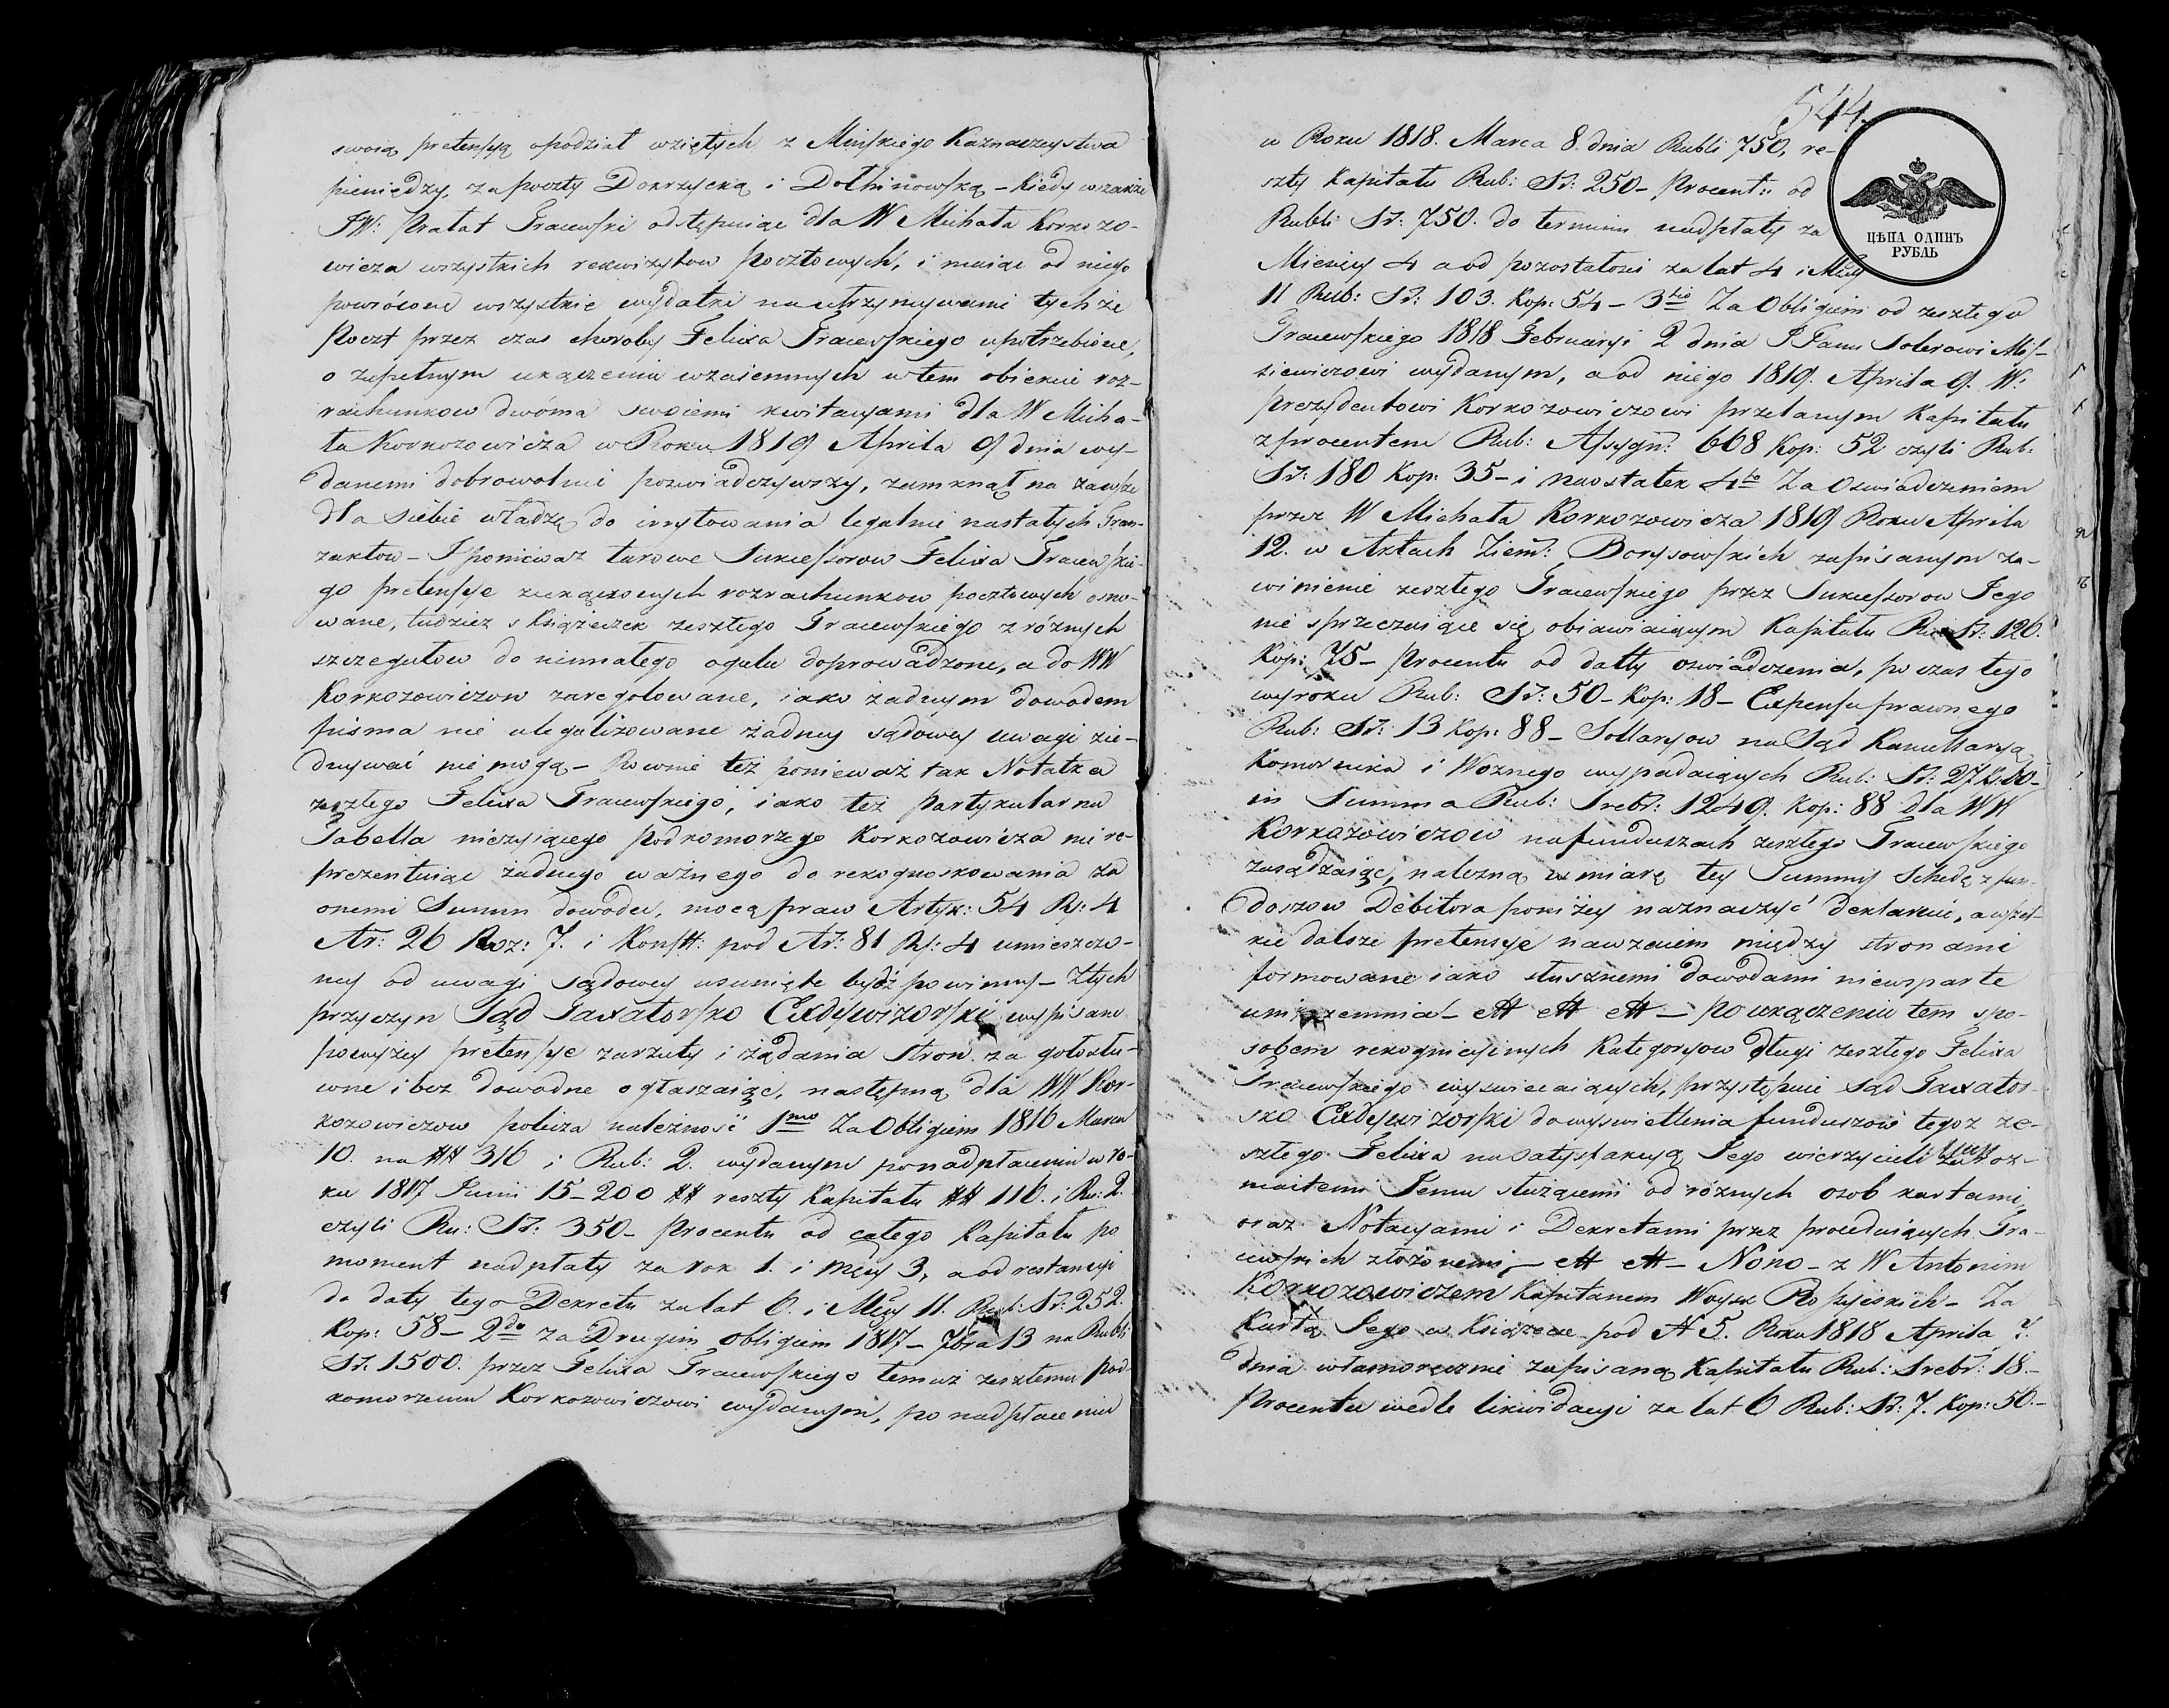 swoią pretensyą opodział wziętych z Mińskiego Kaznaczeystwa
pieniędzy, za poczty Dokrzycką i Dołhinowską – Kiedy wszakże
JW: Prałat Gracewski odstępuiąc dla W Michała Korkozo-
wicza wszystkich rekwizytow pocztowych, i maiąc od niego
powrócone wszystkie wydatki na utrzymywanie tychże
Poczt przez czas choroby Felixa Gracewskiego upotrzebione,
o zupełnym ukączeniu wzaiemnych w tem obiekcie roz-
rachunkow dwóma swoiemi kwitacyami dla W Micha-
ła Korkozowicza w Roku 1819 Aprila 9 dnia wy-
danemi dobrowolnie poswiadczywszy, zamknął na zawsze
dla siebie władzę do irrytowania legalnie nastałych Tran-
zaktow – I poniewaz takowe Sukcessorow Felixa Gracewskie-
go pretensye zukączonych rozrachunkow pocztowych osno-
wane, tudzież s Książeczek zeszłego Gracewskiego z różnych
szczegułow do niemałego ogułu doprowadzone, a do WW
Korkozowiczow zaregołowane, iako żadnym dowodem
pisma nie ulegalizowane żadney sądowey uwagi zie-
dnywać nie mogą – Rownie też ponieważ tak Notatka
zeszłego Felixa Gracewskiego, iako też partykularna
Tabella nieżyiącego podkomorzego Korkozowicza nie re-
prezentuiąc żadnego ważnego do rekognoskowania za
onemi Summ dowodu, mocą praw Artyk: 54 Rz: 4
Ar: 26 Roz: 7. i Konstt: pod Ar: 81 Rz: 4 umieszczo-
ney od uwagi sądowey usunięte bydź powinny – Ztych
przyczyn Sąd Taxatorsko Exdywizorski wypisane
powyżey pretensye zarzuty i żądania stron za gołosłu-
wne i bez dowodne ogłaszaiąc, następną dla WW Kor-
kozowiczow policza należność 1mo Za Obligiem 1816 Marca
10. na ## 316 i Rub: 2. wydanym po nadpłaceniu w ro-
ku 1817 Junii 15 – 200 ## reszty Kapitału ## 116. i Ru: 2.
czyli Ru: Sr: 350 – Procentu od całego Kapitału po
moment nadpłaty za rok 1. i Mcy 3, a od restancyi
do daty tego Dekretu za lat 6. i Mcy 11. Rub: Sr: 252.
Kop: 58 – 2do za Drugim obligiem 1817 – 7bra 13 na Rubli
Sr. 1500. przez Felixa Gracewskiego temuż zeszłemu pod-
komorzemu Korkozowiczowi wydanym, po nadpłaceniu
544.
w Roku 1818. Marca 8. dnia Rubli 750, re-
szty Kapitału Rub: Sr: 250 – Procent: od
Rubli Sr: 750. do terminu nadpłaty za
Miesięcy 4 a od pozostałosci za lat 4 i Mcy
11 Rub: Sr: 103. Kop: 54 – 3tio Za Obligiem od zeszłego
Gracewskiego 1818 Februaryi 2 dnia J Panu Soterowi Mis-
siewiczowi wydanym, a od niego 1819. Aprila 9. W:
Prezydentowi Korkozowiczowi przelanym Kapitału
z procentem Rub: Assygn: 668 Kop: 52 czyli Rub:
Sr: 180 Kop: 35 – i naostatek 4to Za Oswiadczeniem
przez W Michała Korkozowicza 1819 Roku Aprila
12. w Aktach Ziem: Borysowskich zapisanym za-
winienie zeszłego Gracewskiego przez Sukcessorow Jego
nie sprzeczaiące się obiawiaiącym Kapitału Ru Sr: 120.
Kop: 75 – Procentu od datty oswiadczenia, po czas tego
wyroku Rub: Sr: 50 – Kop: 18 – Expensu prawnego
Rub: Sr: 13 Kop: 88 – Sollaryow na Sąd Kancellaryą
Komornika i Woznego wypadaiących Rub: Sr: 27 K: 60 –
in Summa Rub: Srebr: 1249. Kop: 88 dla WW
Korkozowiczow na funduszach zeszłego Gracewskiego
zasądzaiąc, należną w miarę tey Summy Schedę z fun-
doszow Debitora poniżey naznaczyć deklaruie, a wszel-
kie dalsze pretensye nawzaiem między stronami
formowane iako słusznemi dowodami niewsparte
– # # # – po ukączeniu tem spo-
sobem rekognicyinych Kategoryow długi zeszłego Felixa
Gracewskiego wyswiecaiących, przystępuie Sąd Taxator-
sko Exdywizorski do wyswietlenia funduszow tegoż ze-
szłego Felixa na satysfakcyą Jego wierzycieli roz-
maitemi Jemu służącemi od różnych osob kartami,
oraz Notacyami i Dekretami przez proceduiących Gra-
cewskich złożonemi – # # – Nono – z W Antonim
Korkozowiczem Kapitanem Woysk Rossyiskich – Za
Kartą Jego w Książecce pod N 5. Roku 1818 Aprila 7.
dnia własnoręcznie zapisaną Kapitału Rub: Srebr: 18. –
Procentu wedle likwidacyi za lat 6 Rub: Sr: 7. Kop: 50. –
ЦѢНА ОДИНЪ
РУБЛЬ